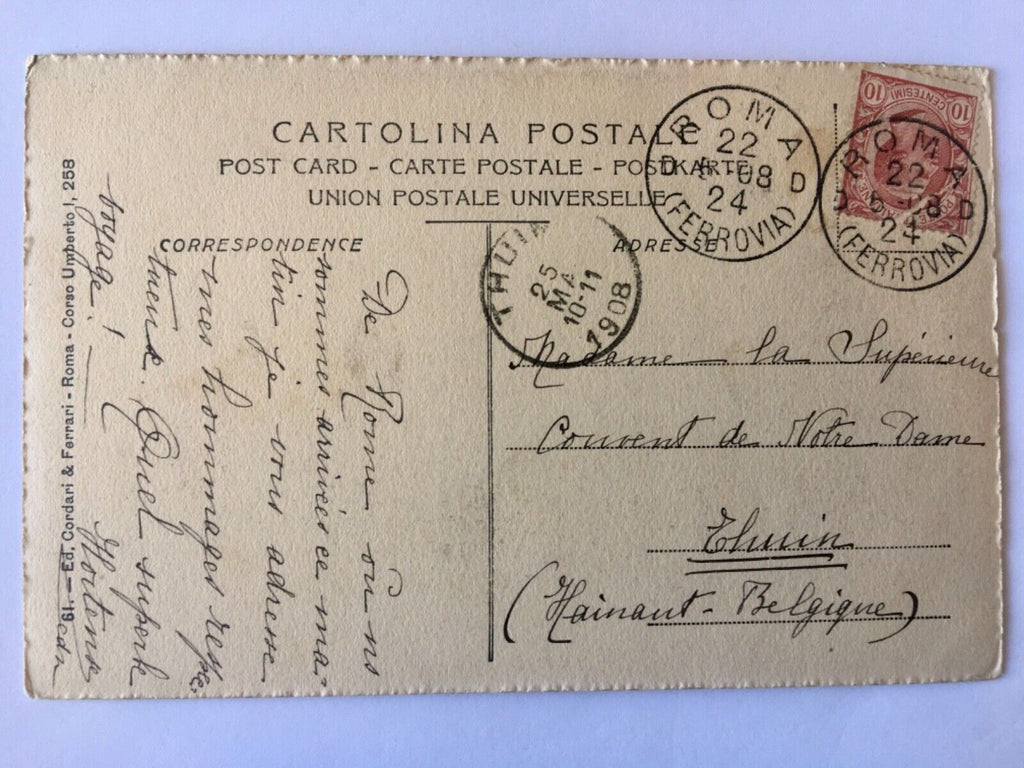 CARTOLINA POSTALE
POST CARD - CARTE POSTALE - POSTKARTE
UNION POSTALE UNIVERSELLE
CORRESPONDENCE
ADRESSE
ROMA
22
5-08
D D
24
(FERROVIA)
10 10
CENTESIMI
ROMA
22
5-08
D
24
(FERROVIA)
THUIN
25
MA
10-11
1908
De Rome où ns
sommes arrivées ce ma-
tin je vous adresse
mes hommages respec
tueux. Quel superbe
voyage! Hortense
Madame la Supérieure
Couvent de Notre Dame
Thuin
(Hainaut - Belgique)
61. — Ed. Cordari & Ferrari - Roma - Corso Umberto I, 258